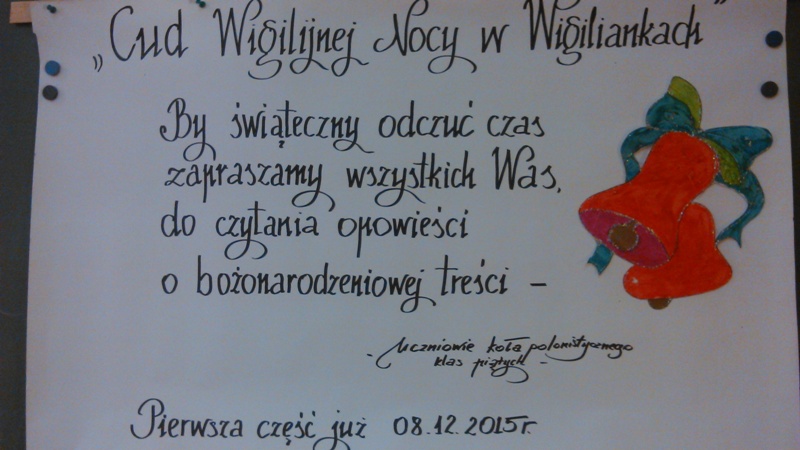 „Cud Wigilijnej Nocy w Wigiliankach”
By świąteczny odczuć czas
zapraszamy wszystkich Was,
do czytania opowieści
o bożonarodzeniowej treści –
- Uczniowie koła polonistycznego
klas piątych -
Pierwsza część już 08.12.2015r.